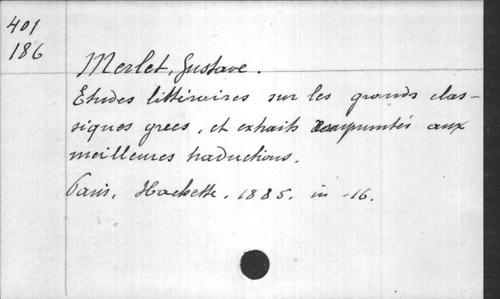 401
186
Merlet, Gustave.
Etudes littéraires sur les grands clas-
siques grecs, et extraits empruntés aux
meilleures traductions.
Paris, Hachette, 1885. in-16.